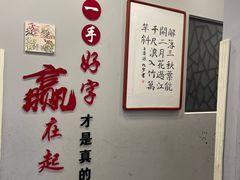 一手好字
才是真的
赢在起
解落三秋葉能
開二月花過江
千尺浪入竹萬
竿斜